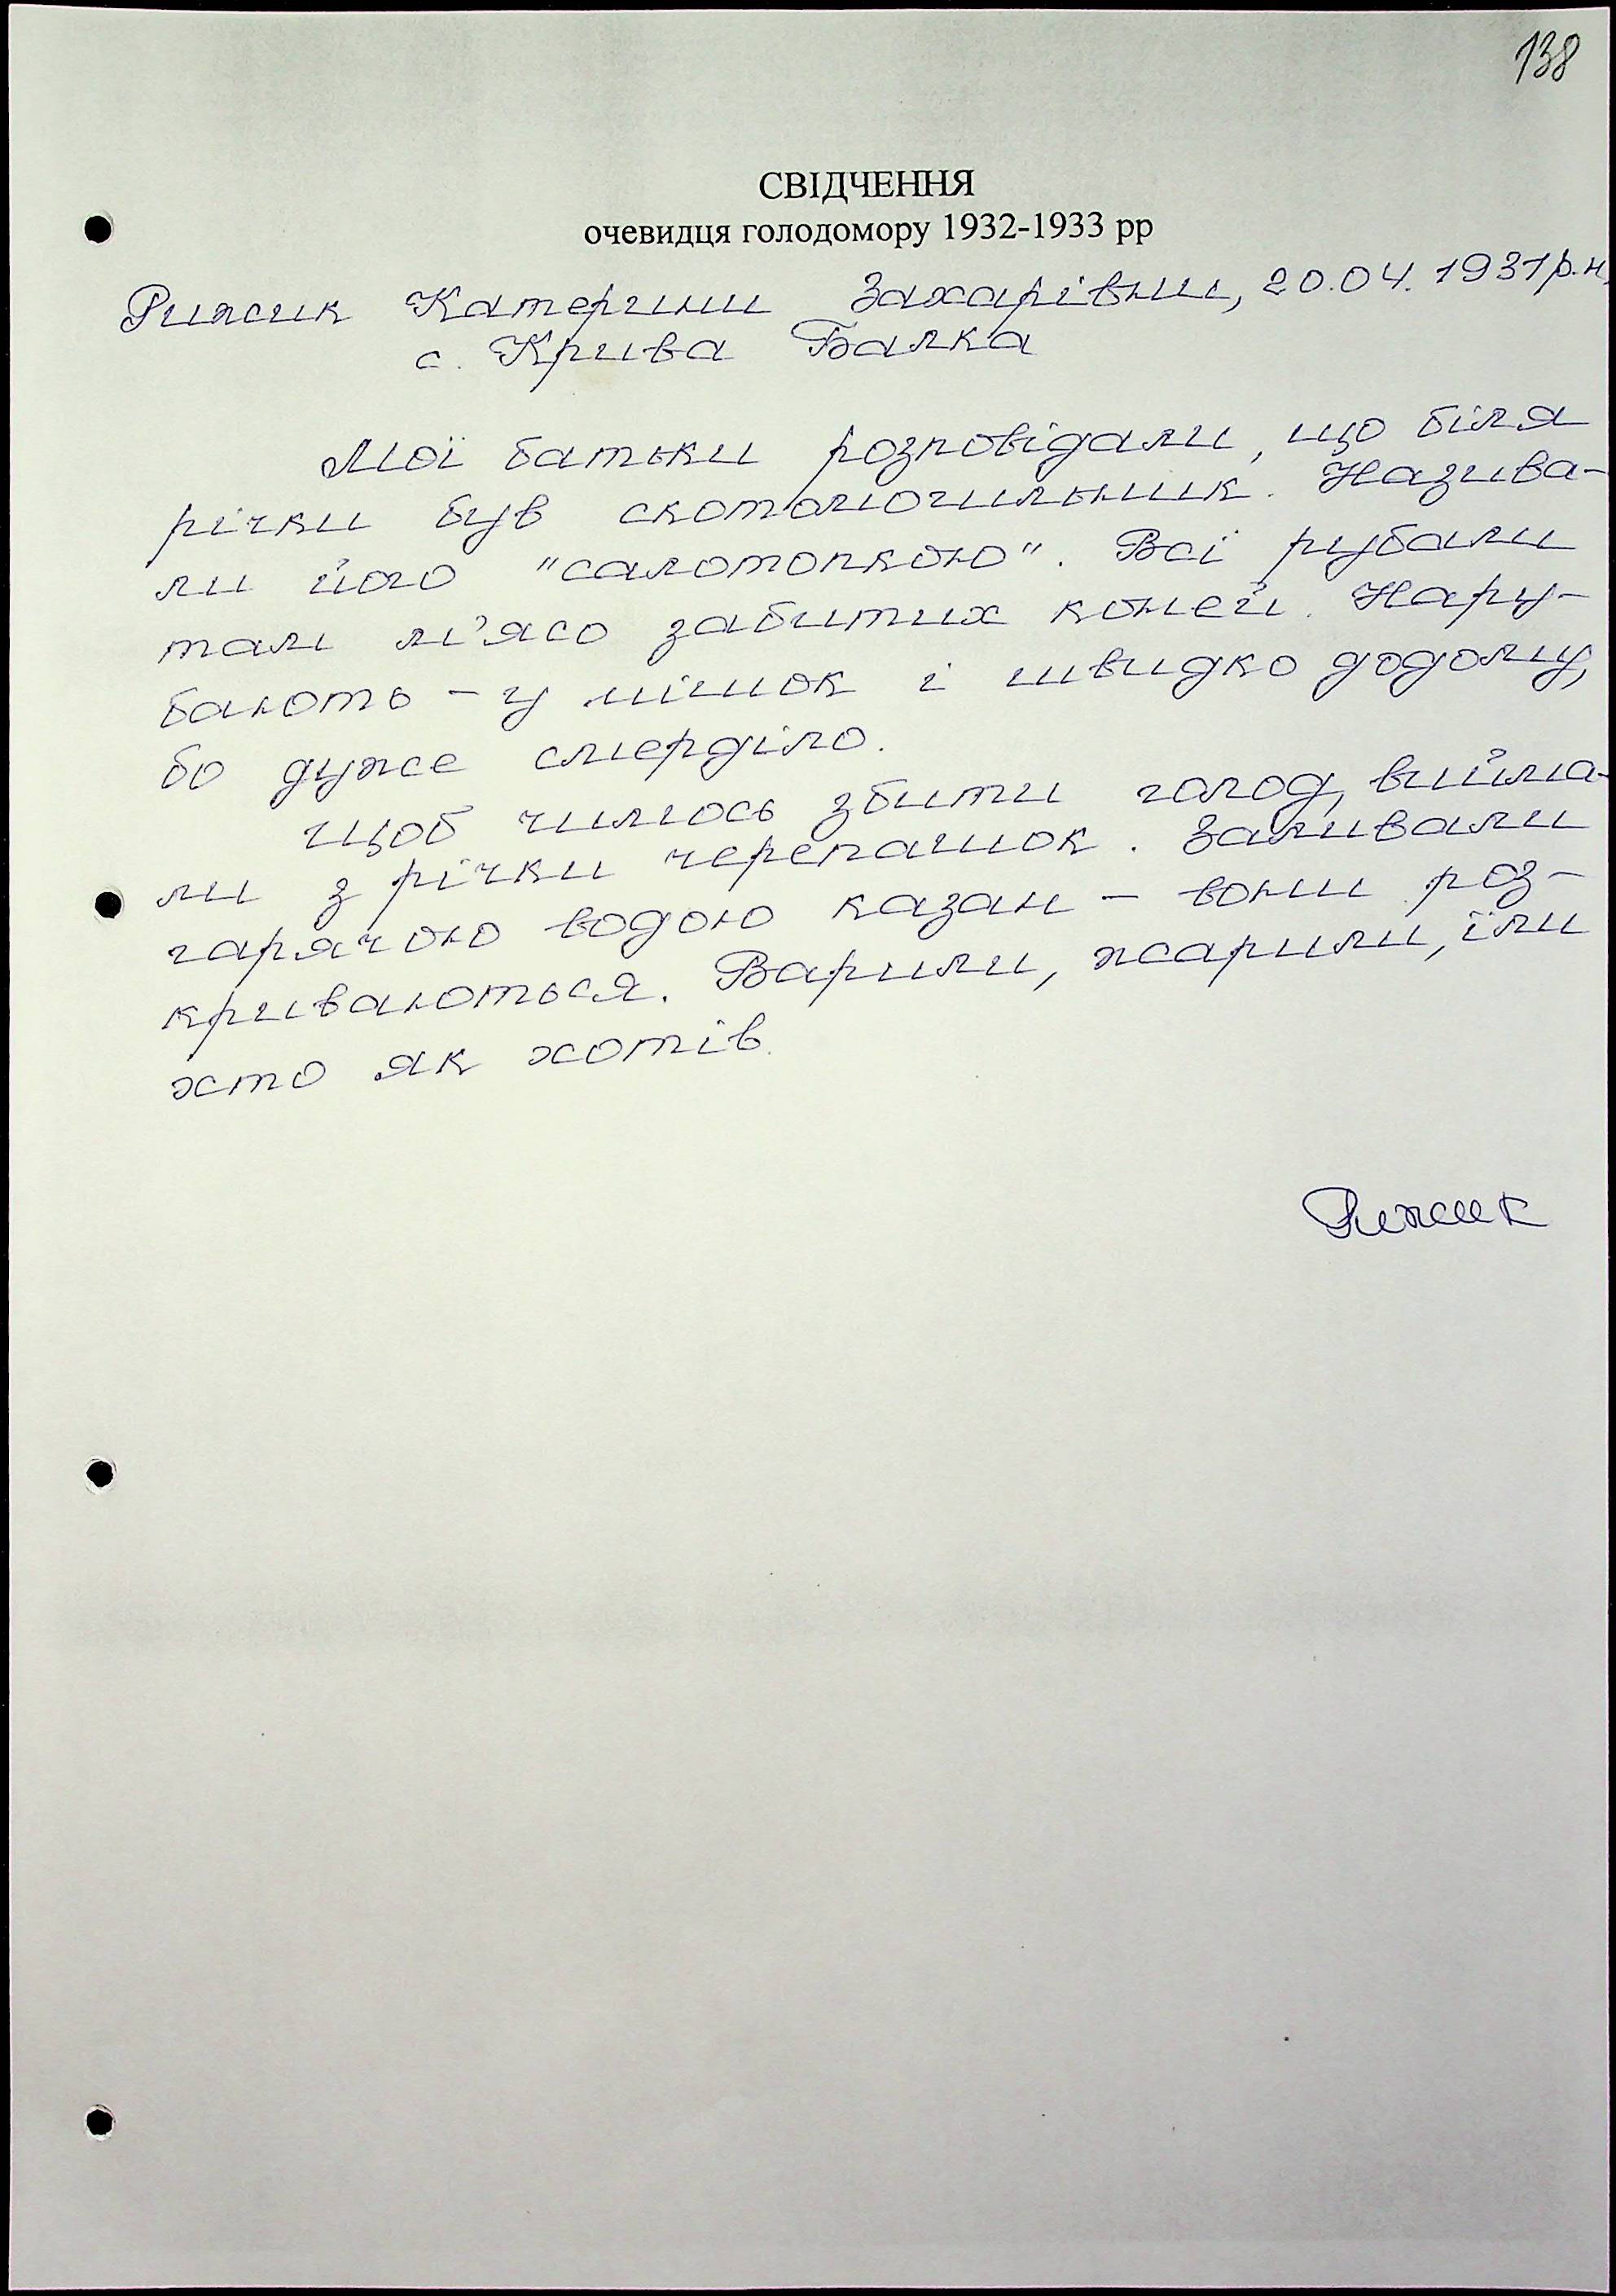 138
СВІДЧЕННЯ
очевидця голодомору 1932-1933 рр
Рижик Катерини Захарівни, 20.04.1931 р.н.
с. Крива Балка
Мої батьки розповідали, що біля
річки був скотомогильник. Назива-
ли його "салотопкою". Всі рубали
там м'ясо забитих коней. Нару-
бають - у мішок і швидко додому,
бо дуже смерділо.
Щоб чимось збити голод, вийма-
ли з річки черепашок. Заливали
гарячою водою казан - вони роз-
криваються. Варили, жарили, їли
хто як хотів.
Рижик